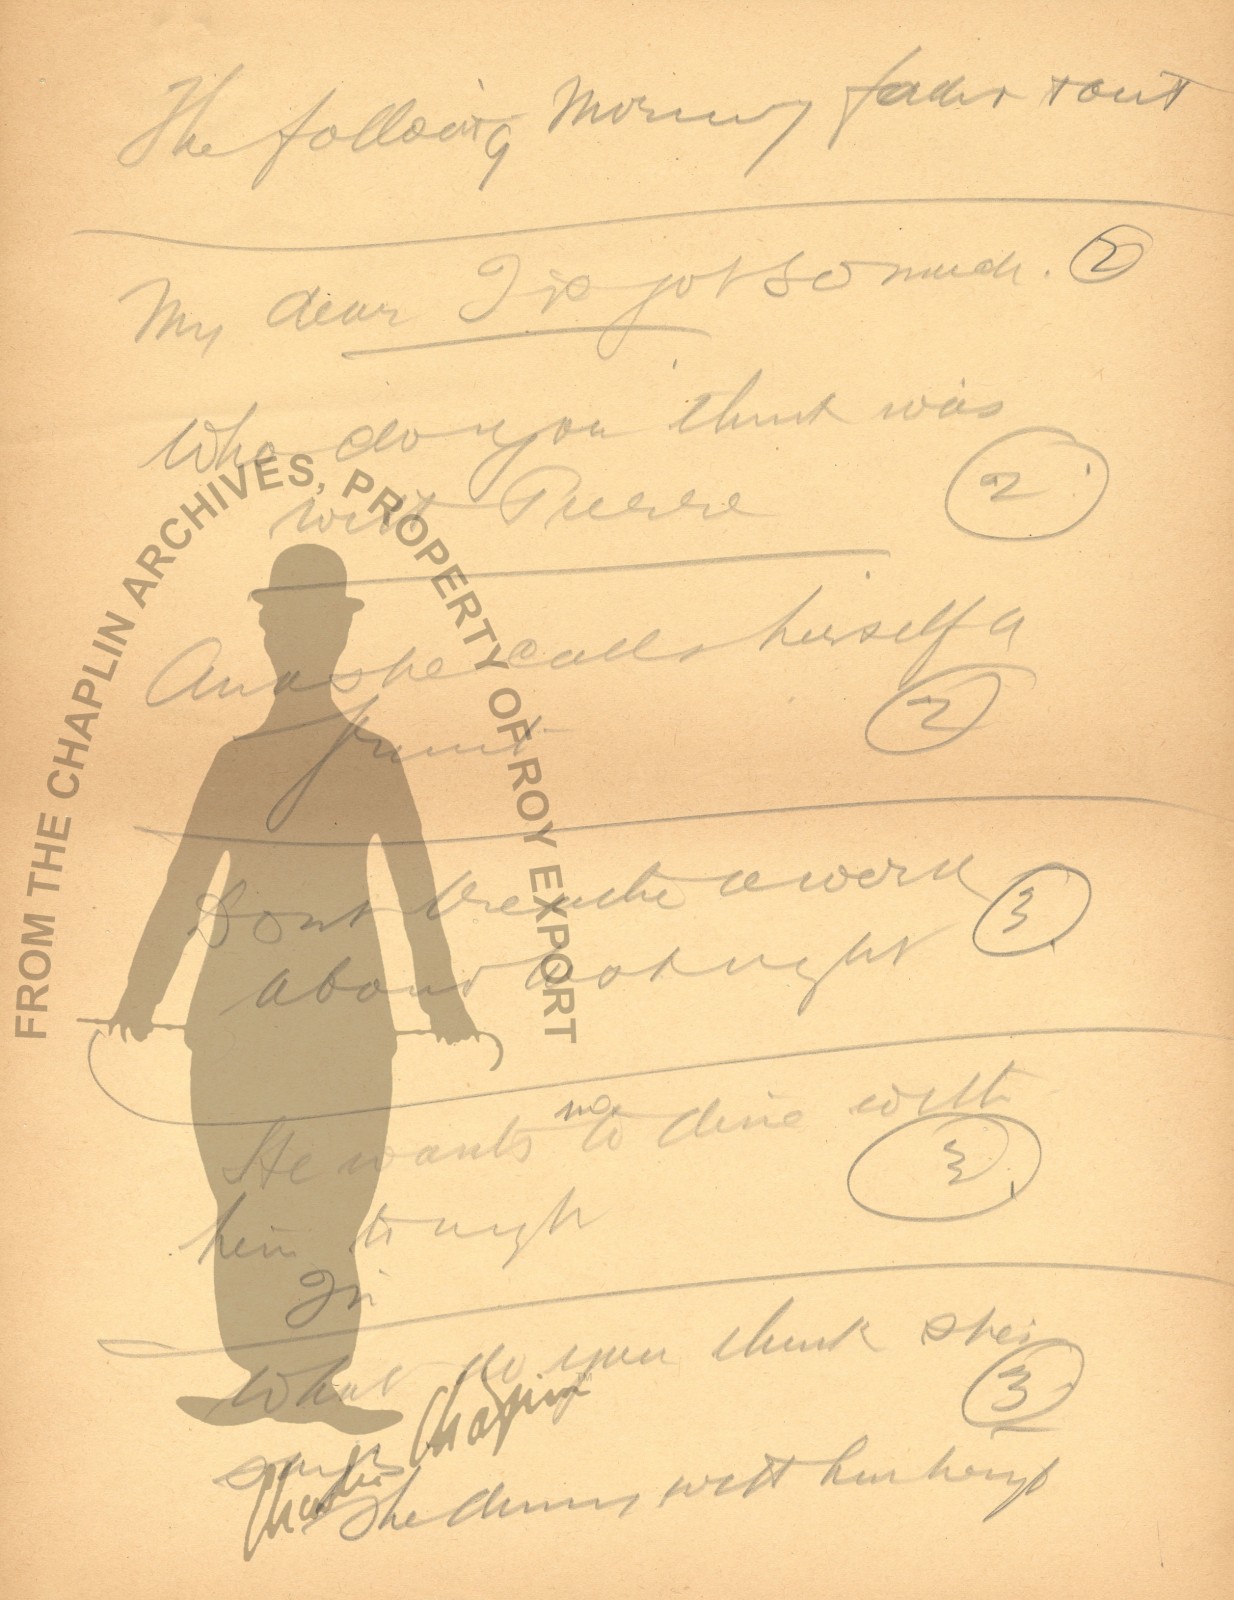 The following Morning fades & out
My dear I've got so much. ②
Who do you think was
with Pierre ②
And she calls herself a
friend ②
Dont breathe a word ③
about last night
He wants me to dine with
him to night ③
In
What do you think she's
③
She dining with him tonight
FROM THE CHAPLIN ARCHIVES, PROPERTY OF ROY EXPORT
Charlie Chaplin™